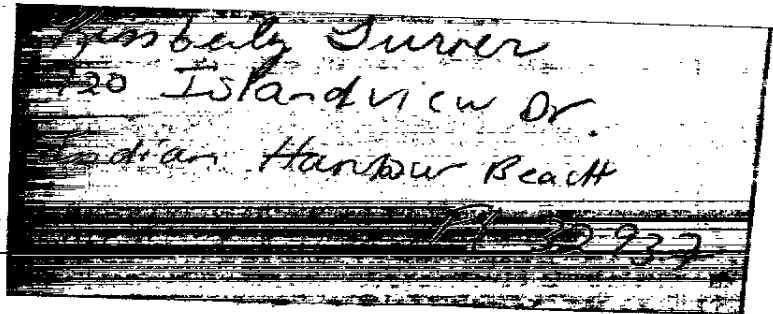 Kimberly Turner
720 Islandview Dr.
Indian Harbour Beach
Fl 32937